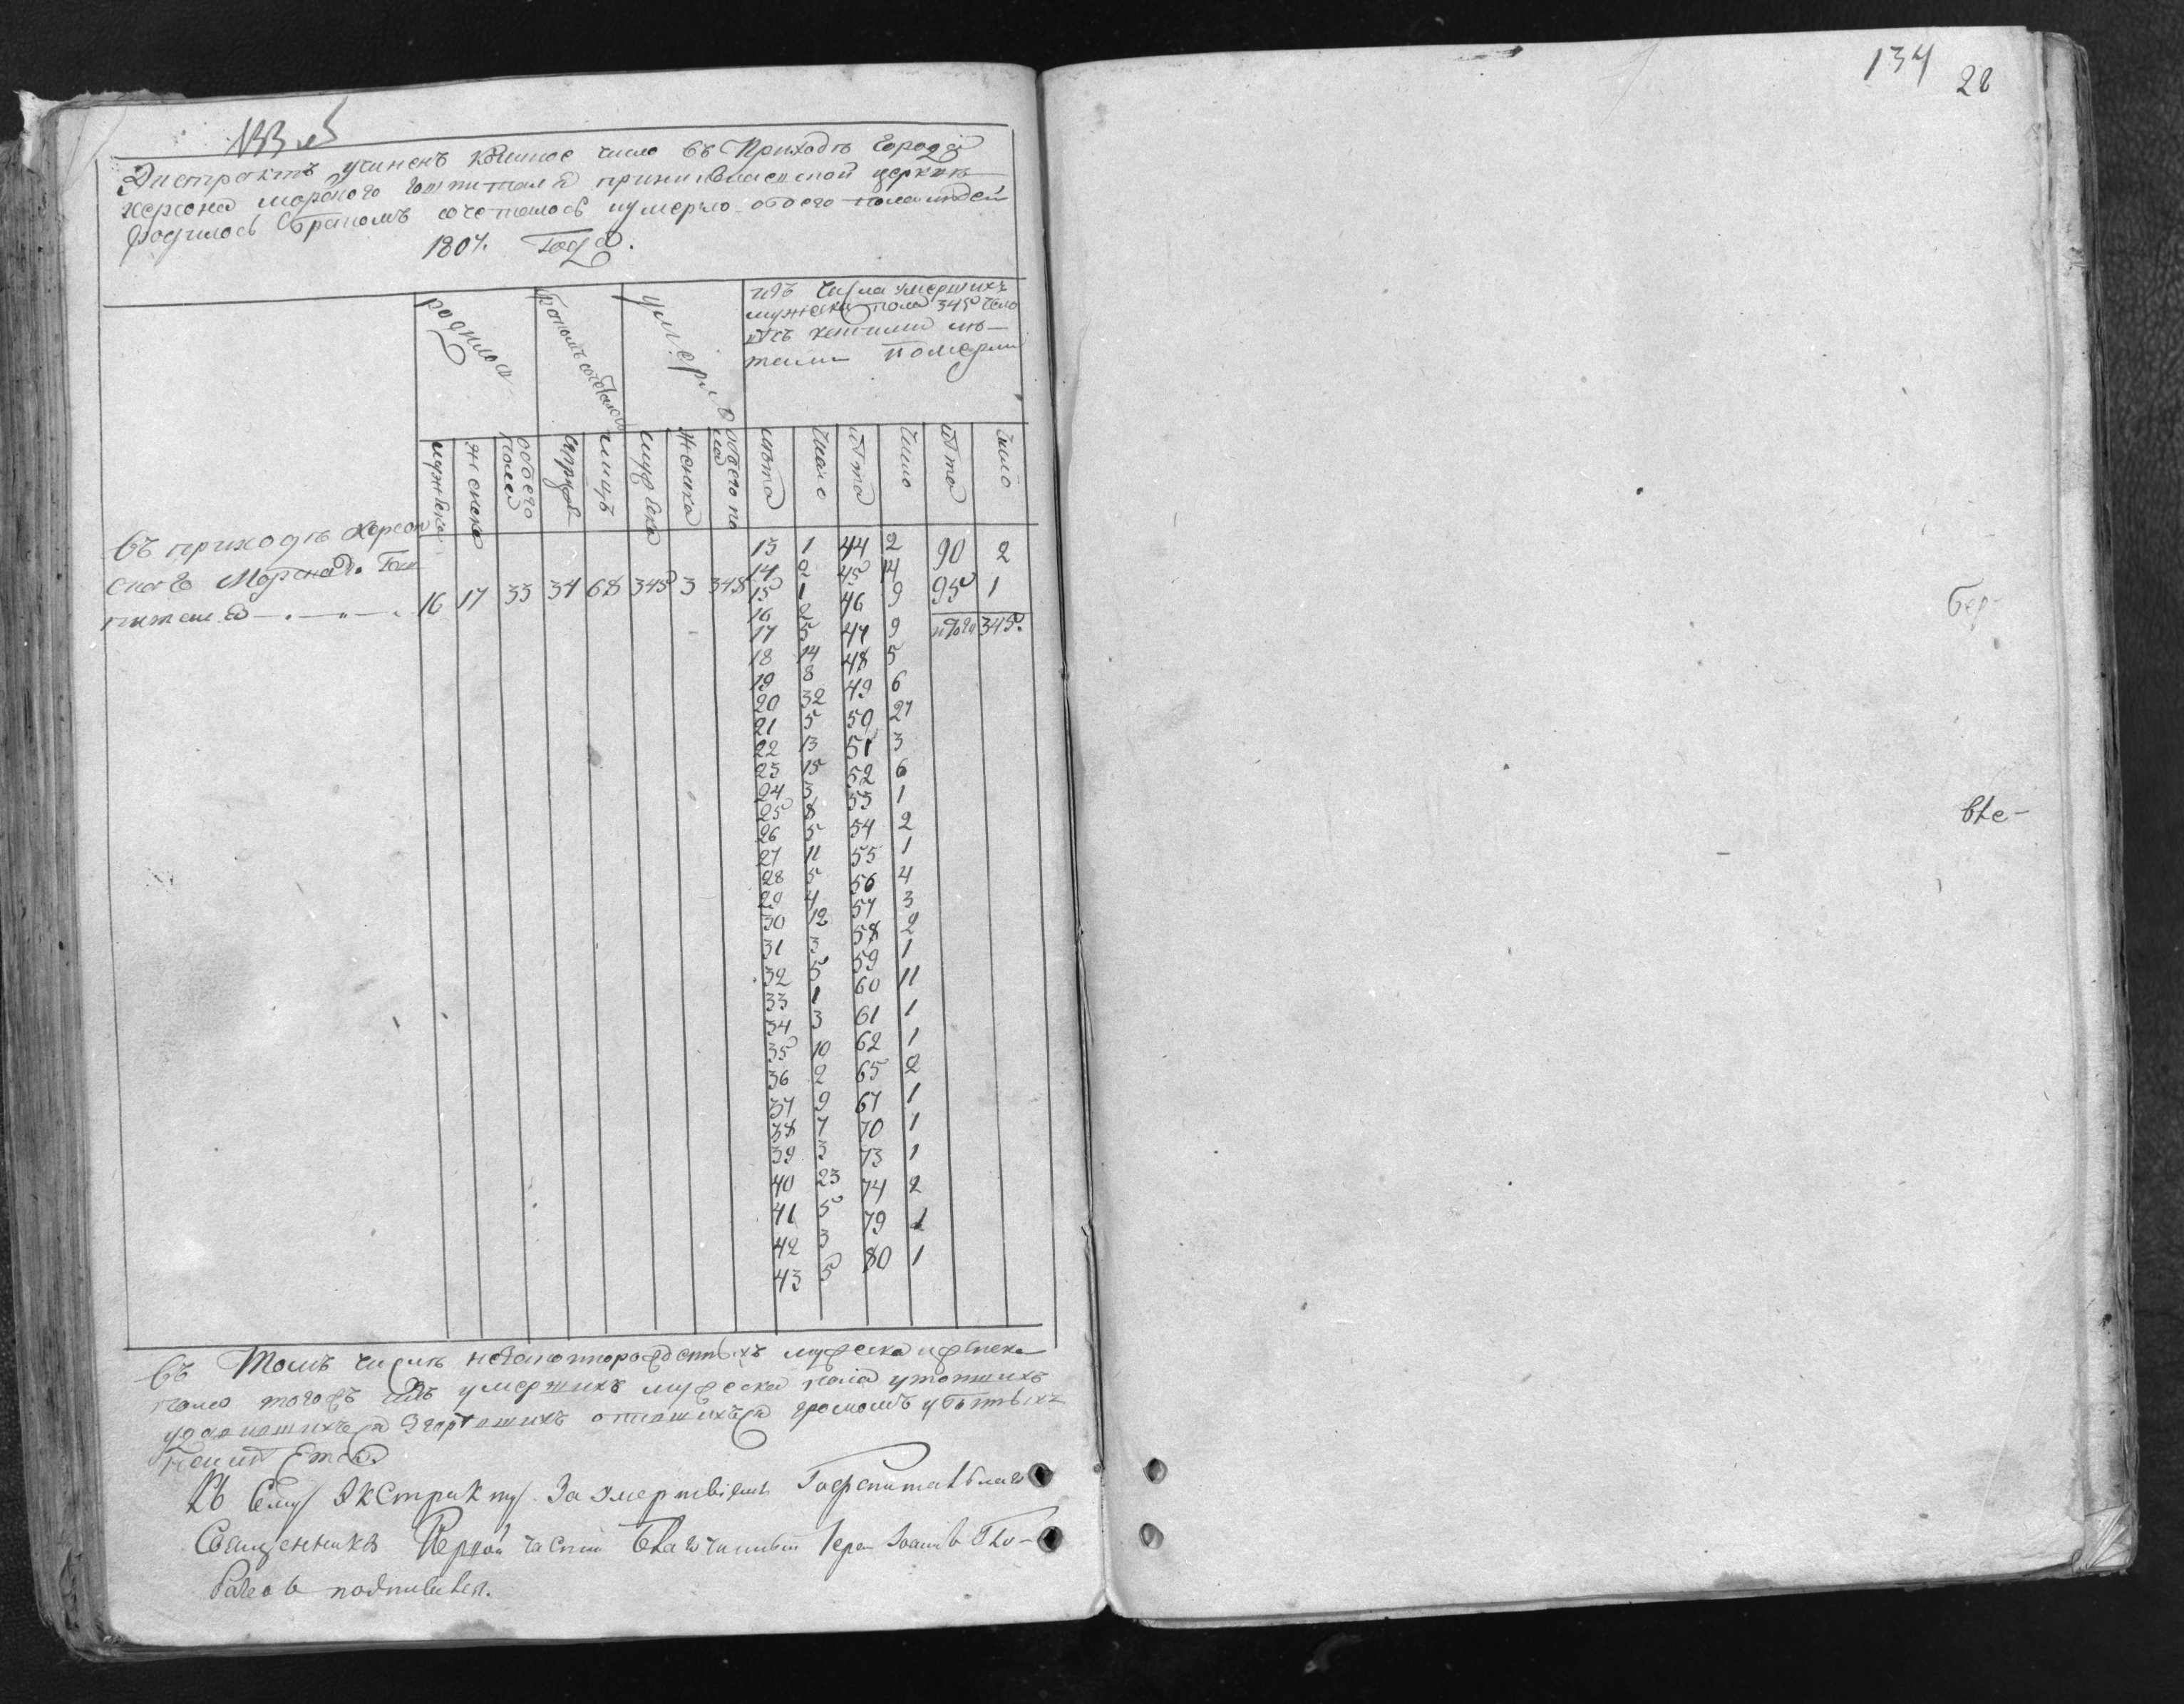 133 об
Экстрактъ учиненъ коликое число въ Приходѣ города
Херсона морского гошпиталя церкви
родилось бракомъ сочеталось и умерло обоего пола людей
1807. Года.
родилось
бракомъ сочеталось
умерло
изъ числа умершихъ
мужеска пола 345
лѣ-
тами померли
мужеска
женска
обоего пола
лицъ
мужеска
женска
обоего по
ла
лѣта
число
лѣта
число
лѣта
число
въ приходѣ Херсон
скаго Морскаго Гош
питаля 16 17 33 34 68 345 3 348
13 1 44 2 90 2
14 2 45 14 95 1
15 1 46 9 итого 345.
16 2 47 9
17 5 48 5
18 14 49 6
19 8 50 27
20 32 51 3
21 5 52 6
22 13 53 1
23 15 54 2
24 3 55 1
25 8 56 4
26 5 57 3
27 11 58 2
28 5 59 1
29 4 60 11
30 12 61 1
31 3 62 1
32 5 65 2
33 1 67 1
34 3 70 1
35 10 73 1
36 2 74 2
37 9 79 1
38 7 80 1
39 3
40 23
41 5
42 3
43 5
въ томъ числѣ мужеска и женска
пола изъ умершихъ мужеска пола утопшихъ
громомъ убитыхъ
Къ сему Экстракту
Священника Первой части Благочинный Іерей Іоаннъ
подписался.
134
22